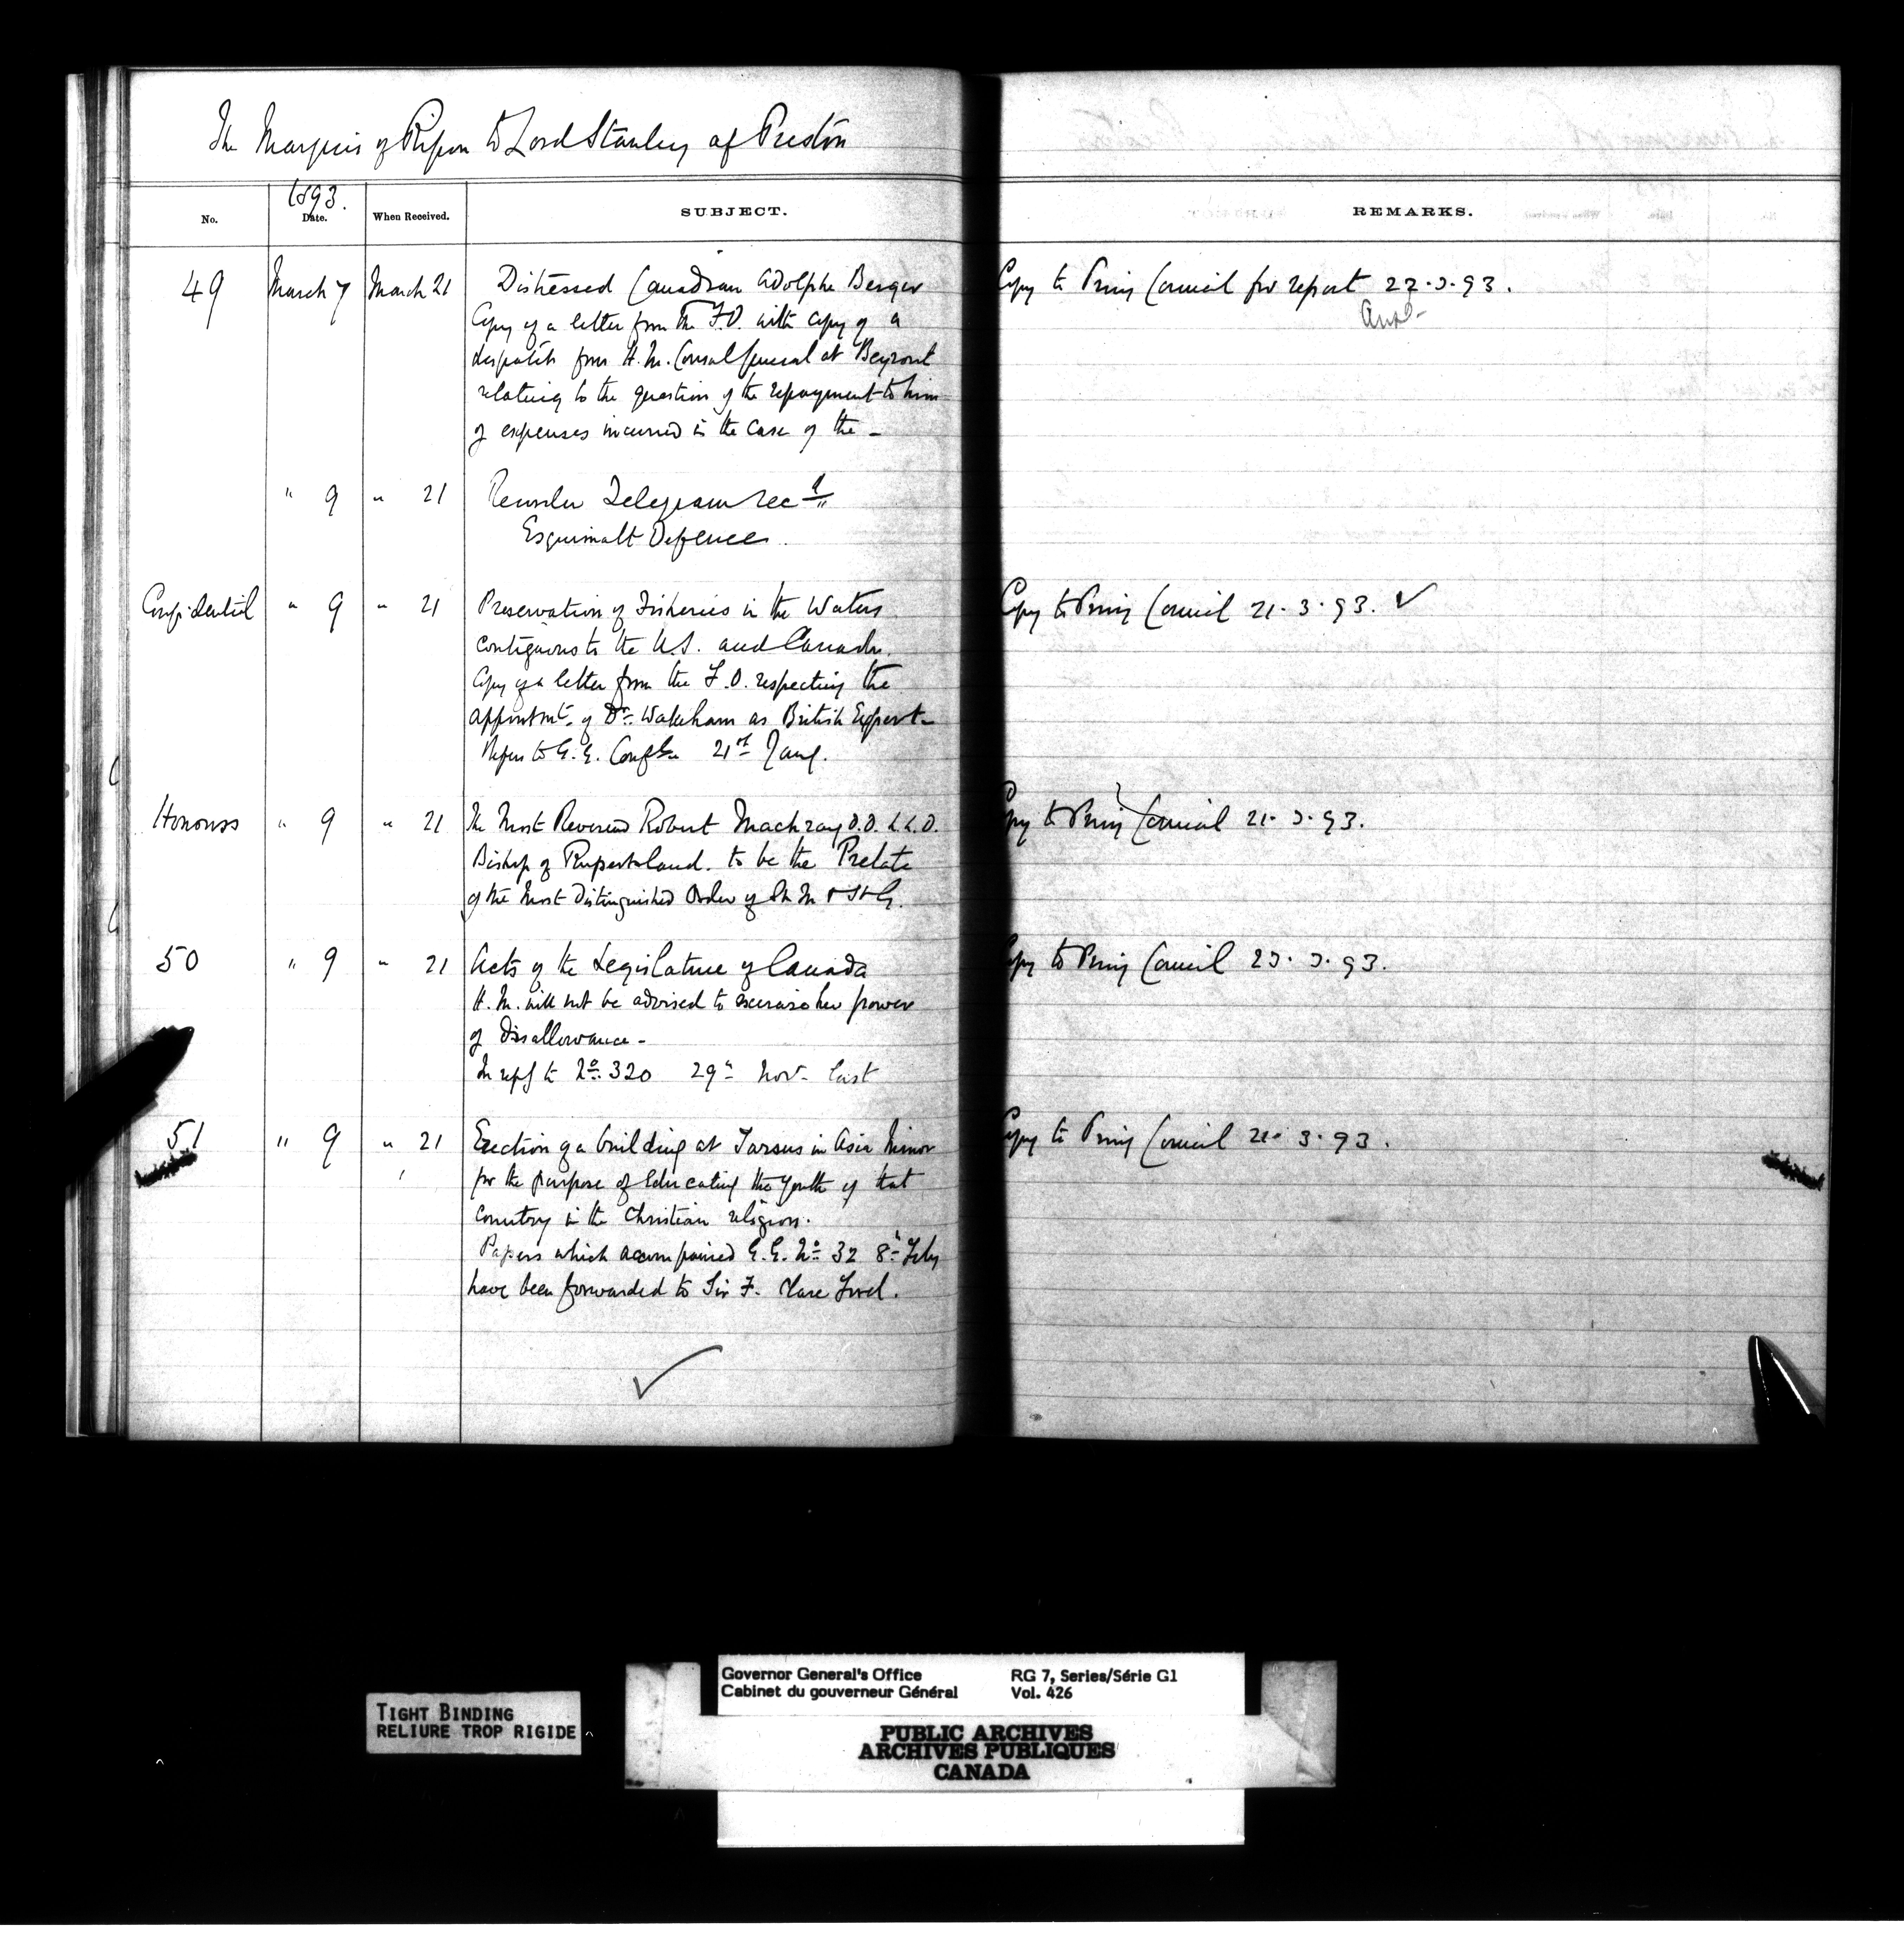 The Marquis of Ripon to Lord Stanley of Preston
1893.
No. Date. When Received. SUBJECT. REMARKS.
49 March 7 March 21 Distressed Canadian Adolphe Berger Copy to Privy Council for report 22.3.93.
Copy of a letter from the F.O. with copy of a Ansd.
despatch from H.M. Consul General at Beyrout
relating to the question of the repayment to him
of expenses incurred in the case of the -
" 9 " 21 Telegram recd
Esquimalt Defences.
Confidential " 9 " 21 Preservation of Fisheries in the Waters Copy to Privy Council 21.3.93. ✓
contiguous to the U.S. and Canada.
Copy of a letter from the F.O. respecting the
appointmt. of Dr. Wakeham as British Expert-
Refers to G.G. 21st Jany.
Honours " 9 " 21 The Most Reverend Robert Machray D.D. L.L.D. Copy to Privy Council 21.3.93.
Bishop of Rupertsland. to be the Prelate
of the Most Distinguished Order of St M & St G.
50 " 9 " 21 Acts of the Legislature of Canada Copy to Privy Council 23.3.93.
H.M. will not be advised to exercise her power
of disallowance -
In reply to No. 320 29th Nov. last
51 " 9 " 21 Erection of a building at Tarsus in Asia Minor Copy to Privy Council 21.3.93.
for the purpose of educating the youth of that
country in the Christian religion.
Papers which accompanied G.G. No. 32 8th Feby
have been forwarded to Sir F. Clare Ford.
✓
TIGHT BINDING
RELIURE TROP RIGIDE
Governor General's Office RG 7, Series/Série G1
Cabinet du gouverneur Général Vol. 426
PUBLIC ARCHIVES
ARCHIVES PUBLIQUES
CANADA